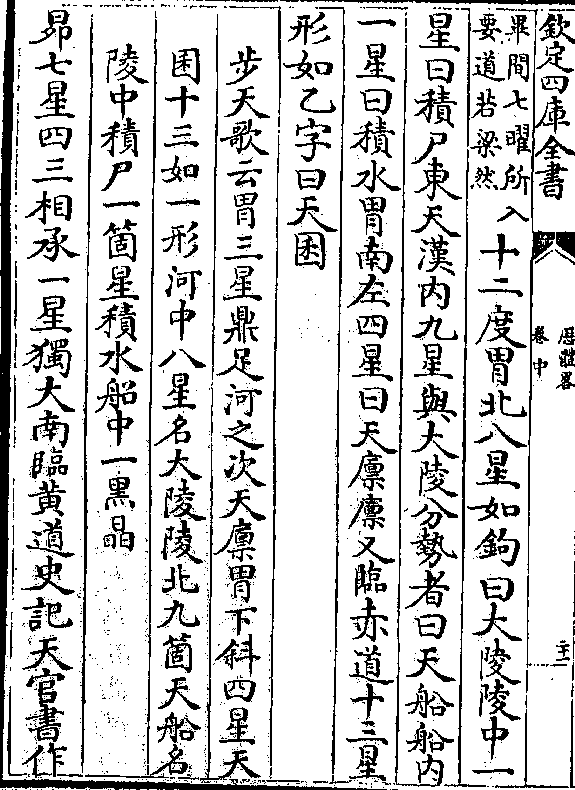 欽定四庫全書
厯體畧
卷中
二十二
畢間七曜所入
要道若梁然
十二度胃北八星如鉤曰大陵陵中一
星曰積尸東天漢内九星與大陵分勢者曰天船船内
一星曰積水胃南左四星曰天廪廪又臨赤道十三星
形如乙字曰天囷
步天歌云胃三星鼎足河之次天廪胃下斜四星天
囷十三如一形河中八星名大陵陵北九箇天船名
陵中積尸一箇星積水船中一黑晶
昴七星四三相承一星獨大南臨黄道史記天官書作